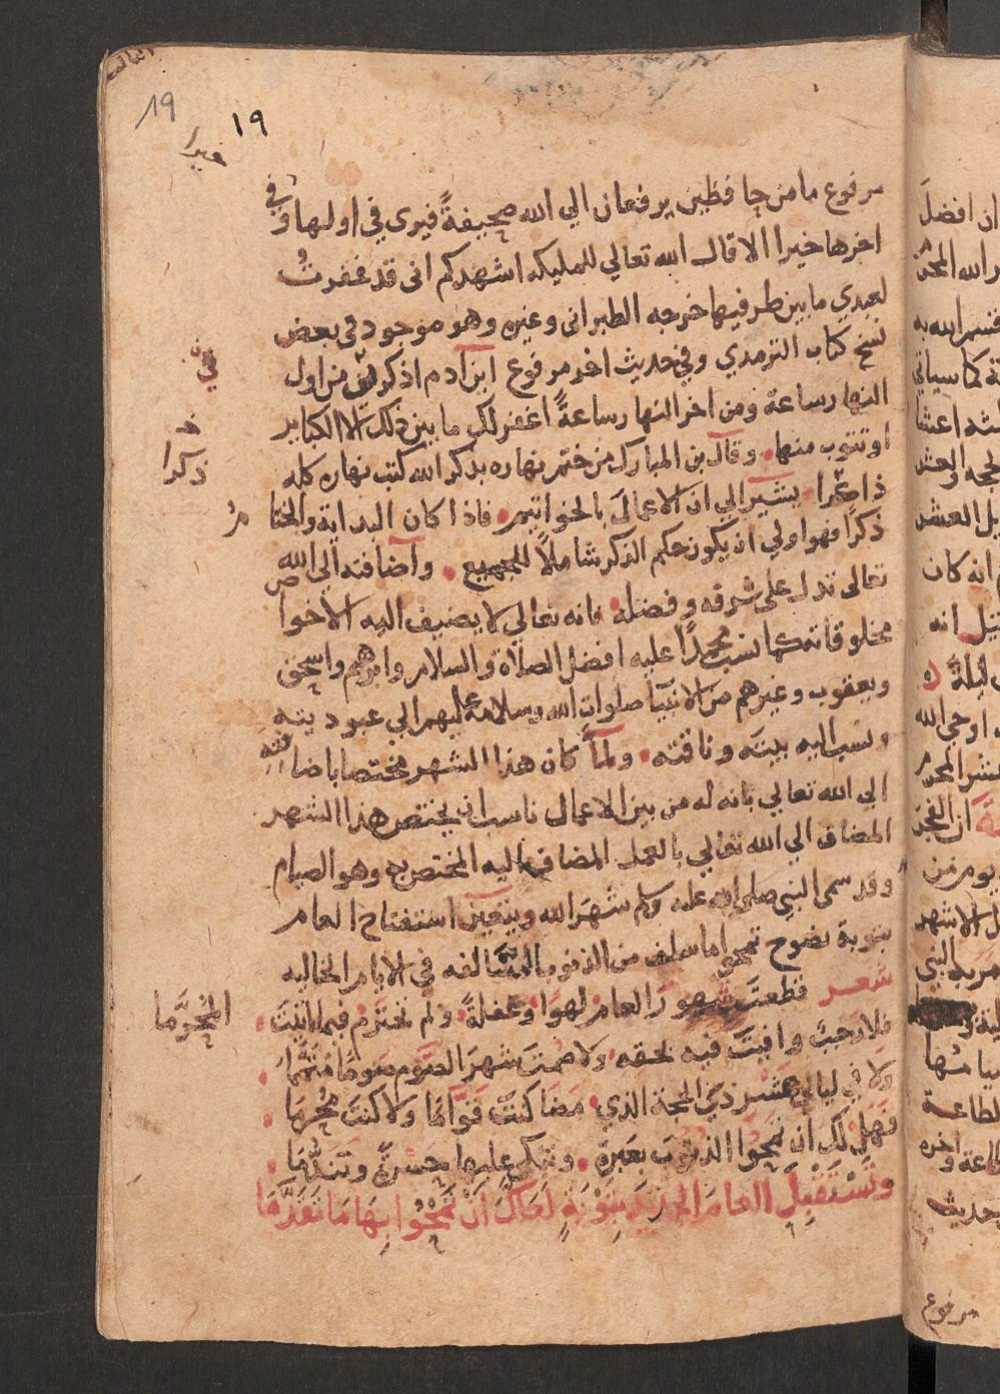 19
١٩
مرفوع ما من حافظين يرفعان الي الله صحيفةً فيرى في اولها وفي
اخرها خيرا الا قال الله تعالي للمليكه اشهدكم انى قد غفرتُ
لعبدي ما بين طرفيها خرجه الطبرانى وغيره وهو موجود في بعض
نسخ كتاب الترمدي وفي حديث اخر مرفوع ابن آدم اذكرنى من اول
النهار ساعة ومن اخر النهار ساعةً اغفر لك ما بين ذلك الا الكباير
او تتوب منها وقال بن المبارك من ختم نهاره بذكر الله كتب نهاره كله
ذاكرا يشير الي ان الاعمالَ بالخواتيم فاذا كان البداية والختا
م
ذكرًا فهو اولي ان يكون حكم الذكر شاملاً للجميع واضافته الي الله
تعالى تدل على شرفه وفضله فانه تعالي لا يضيف اليه الا خوا
ص
مخلوقاته كما نسب محمدًا عليه افضل الصلاة والسلام وابرهيم واسحق
ويعقوب وغيرهم من الانبيآ صلوات الله وسلامه عليهم الي عبوديته
ونسب اليه بيته وناقته ولمّا كان هذا الشهر مختصا باضافته
الى الله تعالي بانه له من بين الاعمال ناسب ان يختص هذا الشهر
المضاف الي الله تعالي بالعمل المضاف اليه المختص به وهو الصيام
وقد سمى النبي صلى الله عليه وسلم شهرَ الله ويتعين استفتاح العام
بتوبة نضوح تمحو اما سلف من الذنوب السالفه في الايام الخاليه
شعر قطعتَ شهورَ العام لهوًا وغفلةً ولم تحترم فيما اتيتَ
المحرَّما
فلا رجبٌ وافيتَ فيه بحقه ولا صمتَ شهرَ الصوم صومًا متمَّما
ولا في ليالي عشر ذي الحجة الذي مضا كنتَ قوّامًا ولا كنتَ محرما
فهل لك ان تمحوا الذنوبَ بعَبرةٍ وتبكي عليها حسرةً وتندُّمَا
وتَسْتَقْبِلَ العامَ الجديدَ بِتَوْبَةٍ لعلكَ اَنْ تَمْحُوا بِهَا مَا تَقَدَّمَا
في
ذكرا
مرفوع